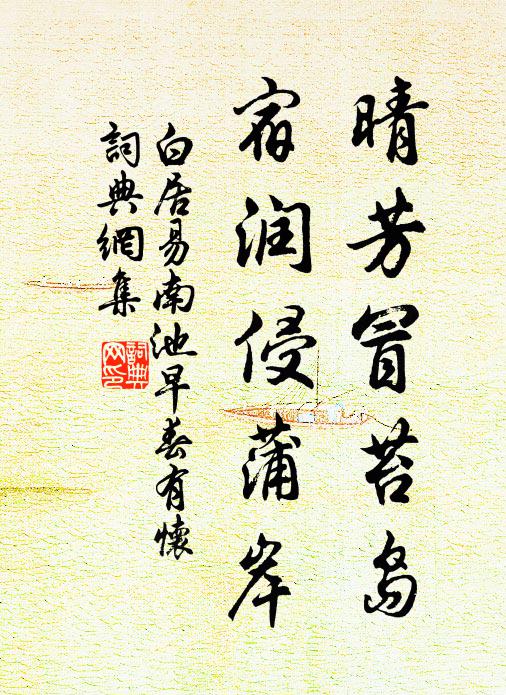 晴芳冒苔岛
宿润侵蒲岸
白居易南池早春有懷
詞典網集
詞典
网印